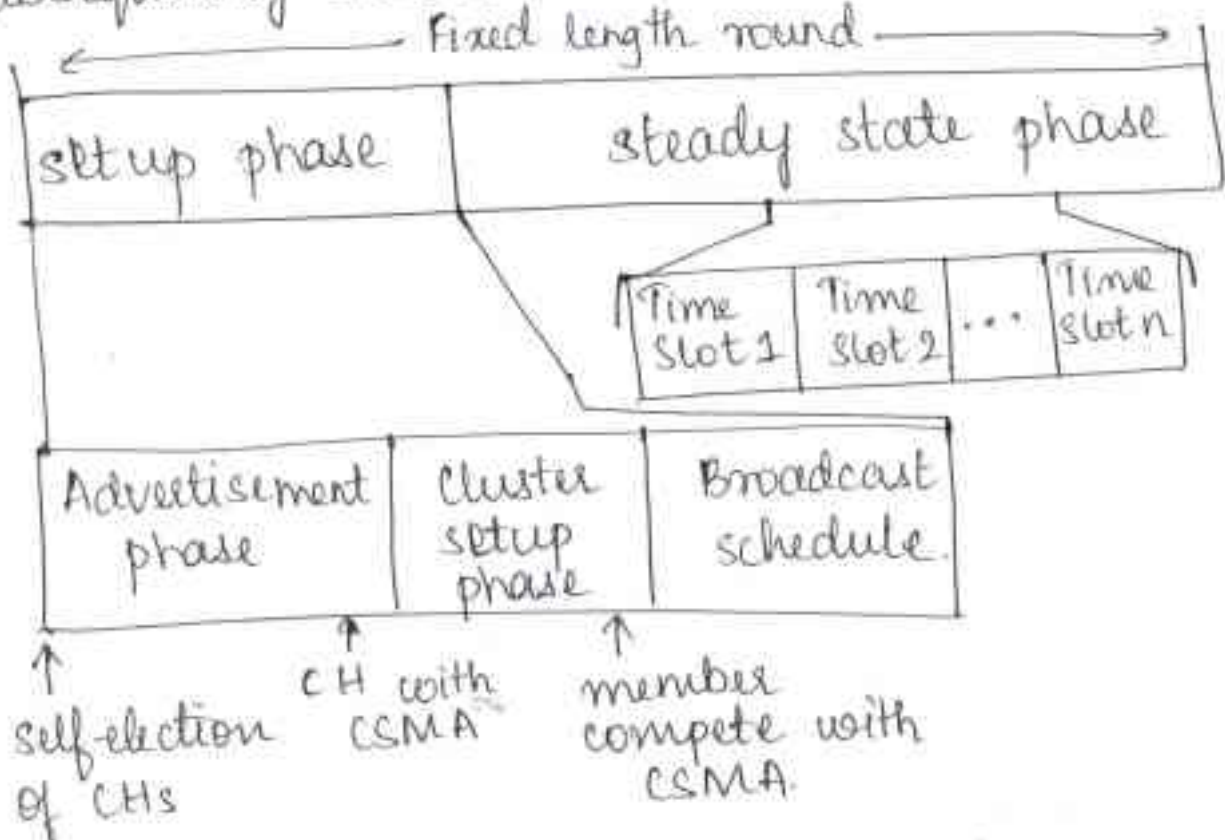 Fixed length round
setup phase
steady state phase
Time
Slot 1
Time
Slot 2
...
Time
Slot n
Advertisement
phase
Cluster
setup
phase
Broadcast
schedule.
self-election
of CHs
CH with
CSMA
member
compete with
CSMA.